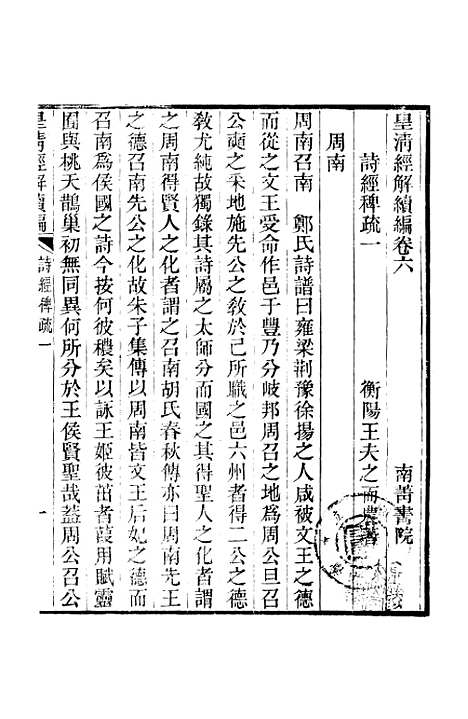 皇清經解續編卷六　南菁書院
詩經稗疏一　衡陽王夫之而農著
周南
周南召南　鄭氏詩譜曰雍梁荆豫徐揚之人咸被文王之德
而從之文王受命作邑于豐乃分岐邦周召之地為周公旦召
公奭之采地施先公之敎於己所職之邑六州者得二公之德
敎尤純故獨錄其詩屬之太師分而國之其得聖人之化者謂
之周南得賢人之化者謂之召南胡氏春秋傳亦曰周南先王
之德召南先公之化故朱子集傳以周南皆文王后妃之德而
召南爲侯國之詩今按何彼穠矣以詠王姬彼茁者葭用賦靈
囿與桃夭鵲巢初無同異何所分於王侯賢聖哉蓋周公召公
皇清經解續編　詩經稗疏一　一